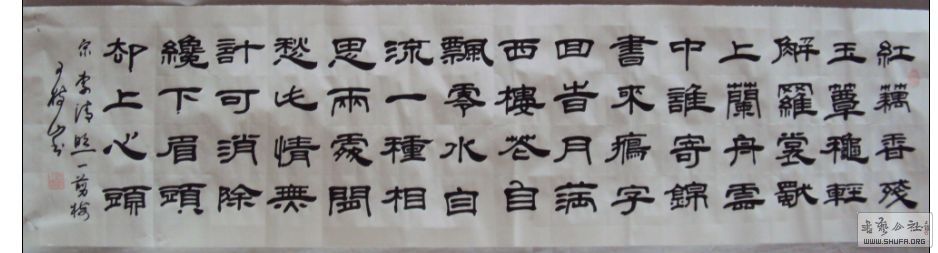 紅藕香殘
玉簟穐輕
解羅裳獨
上蘭舟雲
中誰寄錦
書來鴈字
回旹月满
西樓花自
飄零水自
流一種相
思兩處閒
愁此情無
計可消除
纔下眉頭
却上心頭
宋李清照一剪梅
书艺公社
WWW.SHUFA.ORG